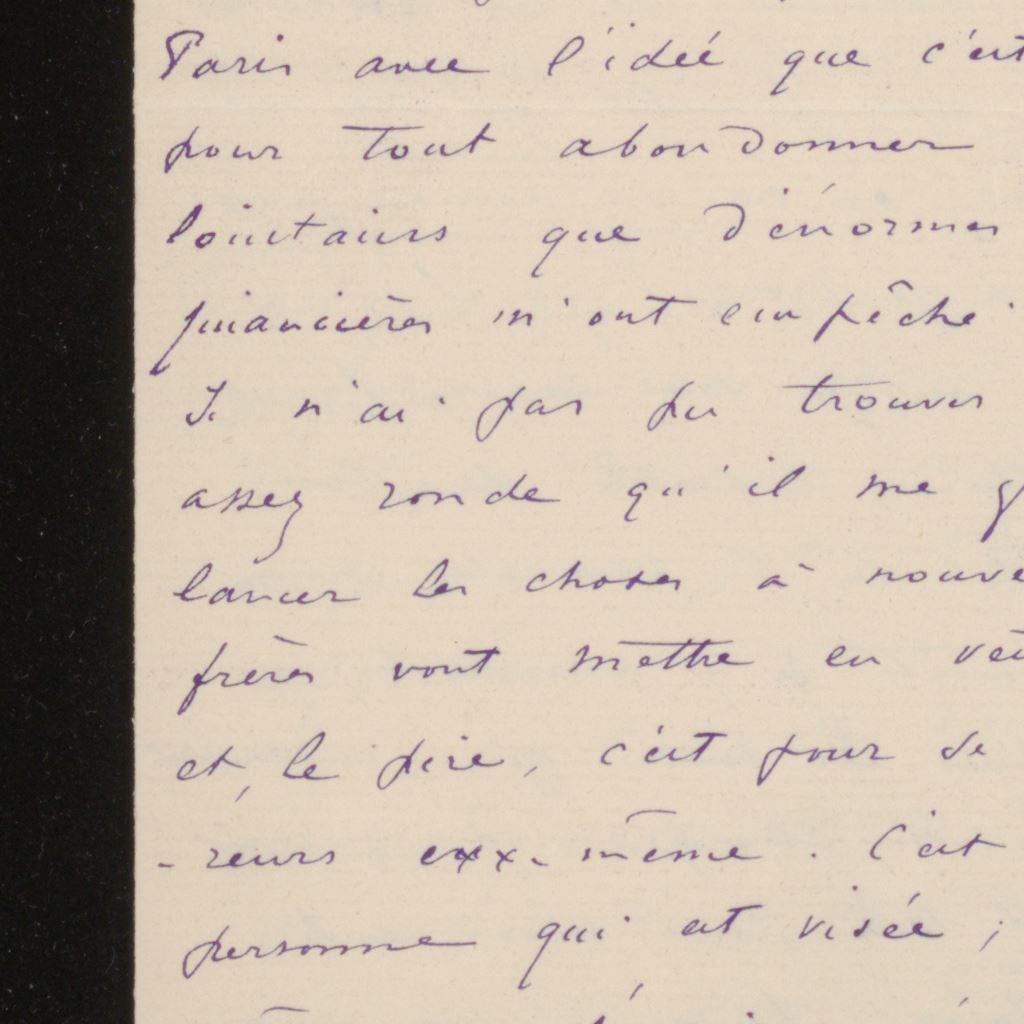 Paris avec l'idée que c'est
pour tout abandonner
lointains que d'énormes
financières m'ont empêché
Je n'ai pas pu trouver
assez ronde qu'il me
lancer les choses à nouve
frères vont mettre en
et, le pire, c'est pour se
-reurs exx-même. C'est
personne qui est visée ;